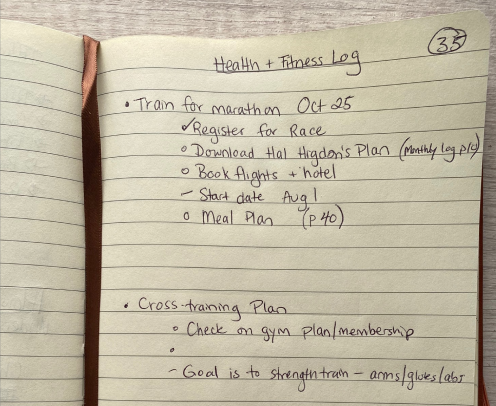 35
Health + Fitness Log
• Train for marathon Oct 25
✓ Register for Race
○ Download Hal Higdon's Plan (Monthly log p
○ Book flights + hotel
– Start date Aug 1
○ Meal Plan (p 40)
• Cross-training Plan
○ Check on gym plan/membership
○
– Goal is to strength train – arms/glutes/abs